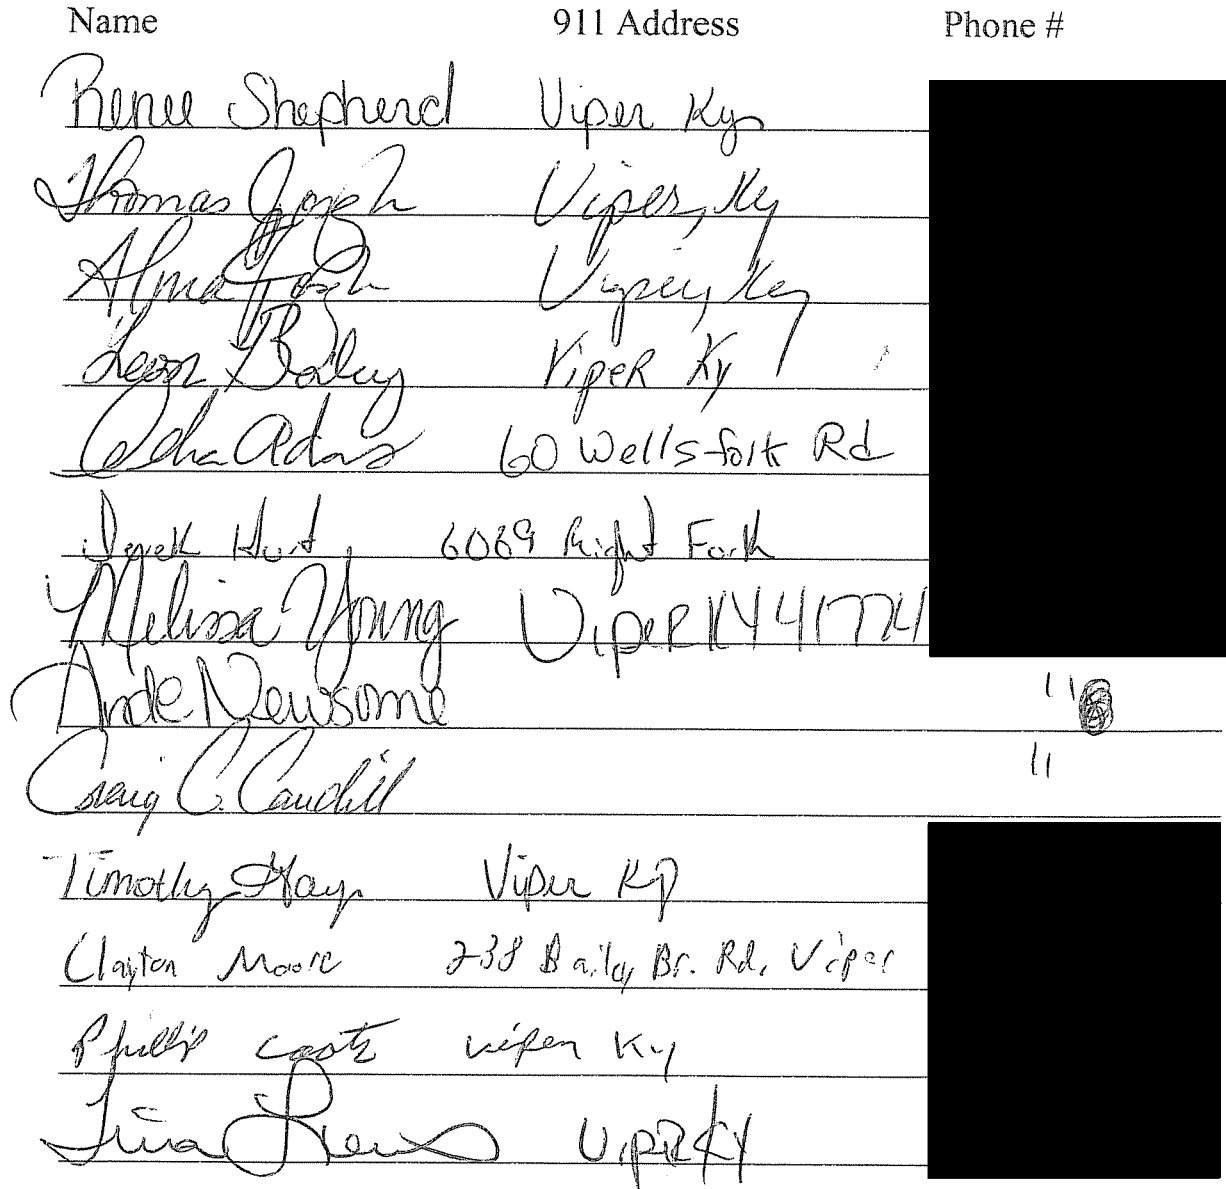 Name 911 Address Phone #
Renee Shepherd Viper Ky
Thomas Joseph Viper, Ky
Alma Viper, Ky
Leon Viper Ky
60 Wellsfork Rd
Derek Hurt 6069 Right Fork
Melissa Young Viper KY 41774
Newsome 11
Craig C. Caudill 11
Timothy Hays Viper Ky
Clayton Moore 238 Baily Br. Rd, Viper
Phillip Viper Ky
Tina Viper KY